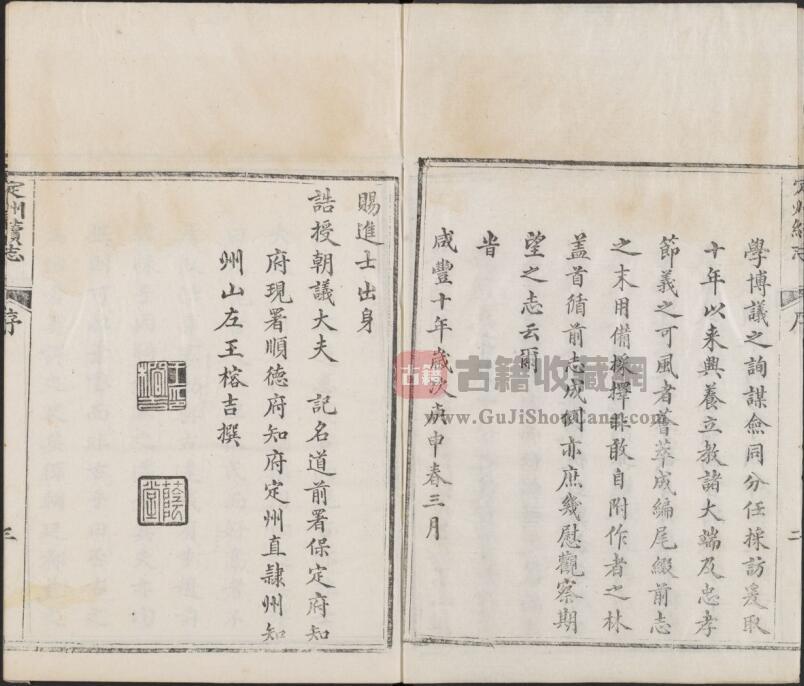 學博議之詢謀僉同分任採訪爰取
十年以来興養立教諸大端及忠孝
節義之可風者薈萃成編尾綴前志
之末用備採擇非敢自附作者之林
盖首循前志成例亦庶幾慰觀察期
望之志云爾
旹
咸豐十年歲次庚申春三月
賜進士出身
誥授朝議大夫 記名道前署保定府知
府現署順德府知府定州直隸州知
州山左王榕吉撰
定州續志
序
三
定州續志
序
二
蔭堂
古籍
古籍收藏网
www.GuJiShouCang.com